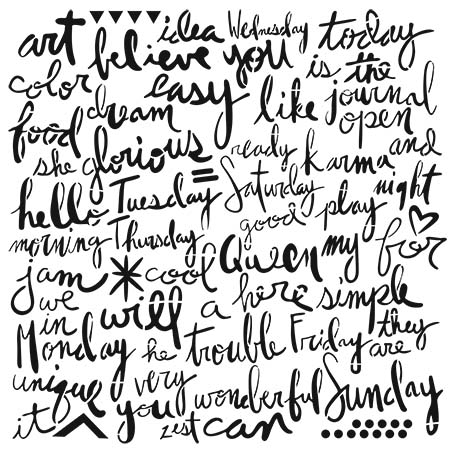 art idea Wednesday today
believe you is the
color dream easy like journal
food open
she glorious = ready karma and
hello Tuesday Saturday night
good play
morning Thursday Queen my for
jam * cool
we will a here simple
in
Monday he trouble Friday they
are
unique very wonderful Sunday
it you zest can